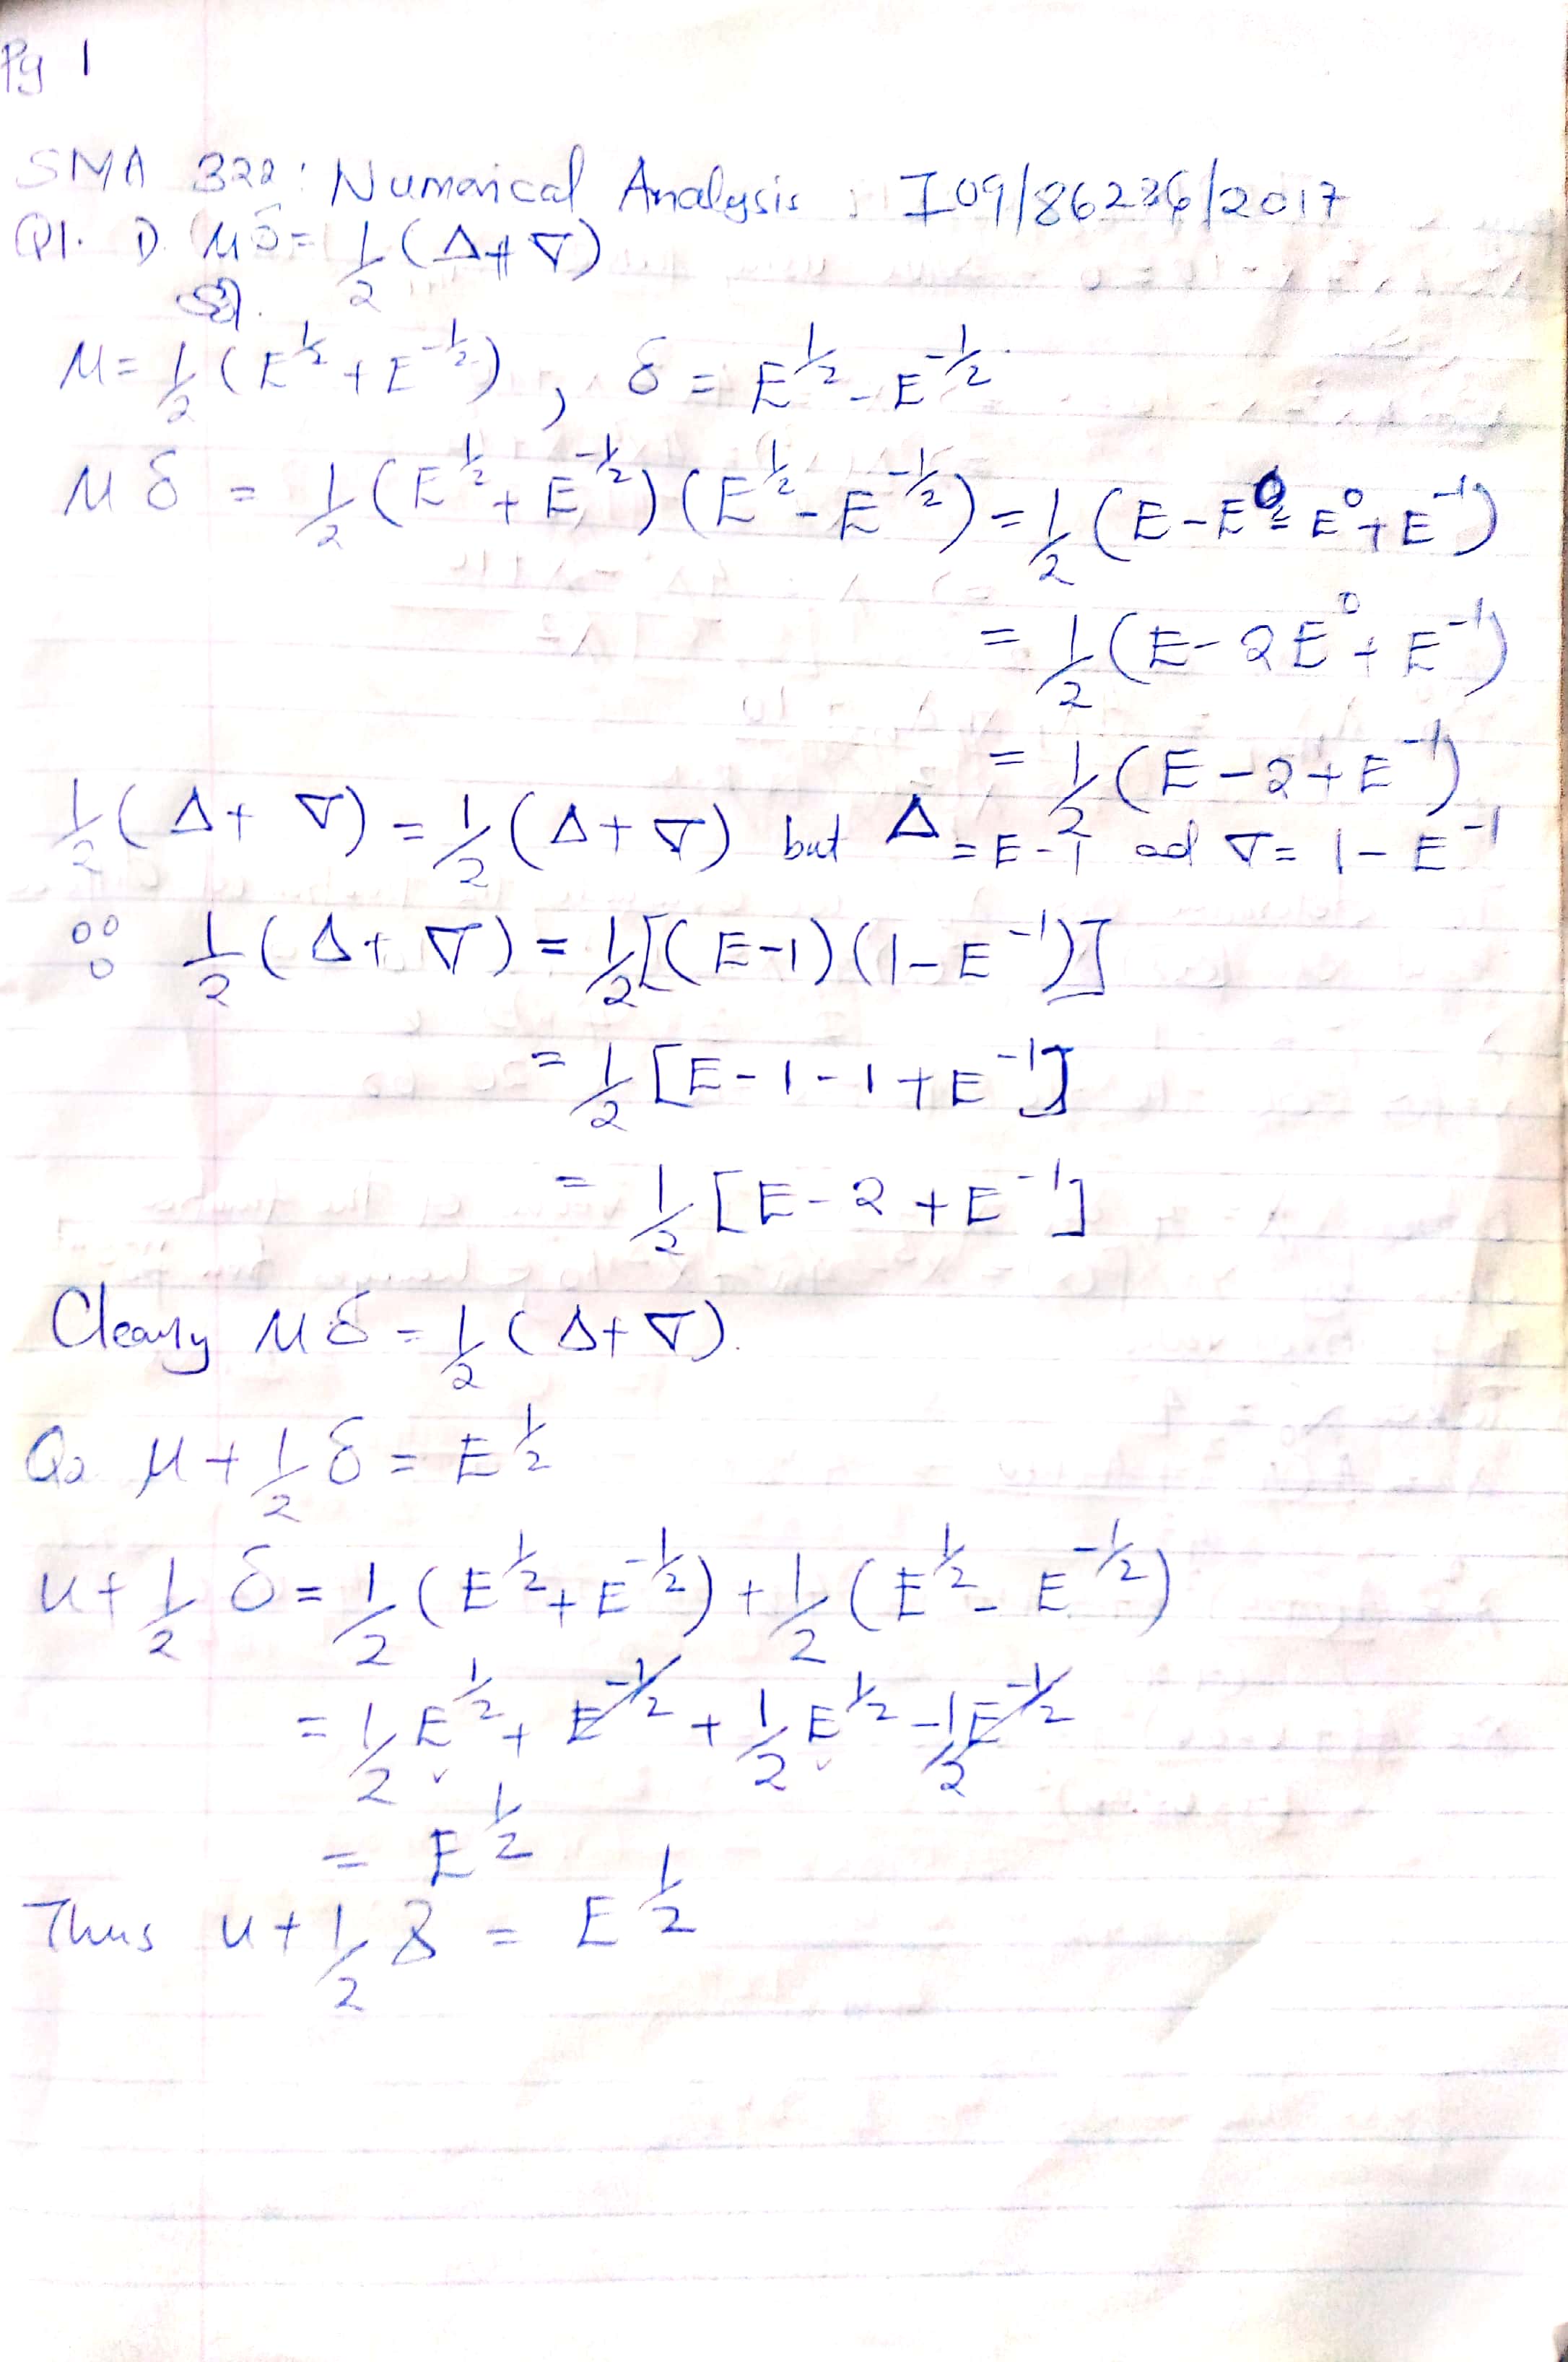 Pg 1
SMA 322: Numerical Analysis : I09/86236/2017
Q1. D. Mδ = 1/2 (Δ + ∇)
Sol.
M = 1/2 (E^1/2 + E^-1/2), δ = E^1/2 - E^-1/2
M δ = 1/2 (E^1/2 + E^-1/2)(E^1/2 - E^-1/2) = 1/2 (E - E^0 - E^0 + E^-1)
= 1/2 (E - 2E^0 + E^-1)
= 1/2 (E - 2 + E^-1)
1/2 (Δ + ∇) = 1/2 (Δ + ∇) but Δ = E - 1 ad ∇ = 1 - E^-1
∴ 1/2 (Δ + ∇) = 1/2 [(E-1)(1-E^-1)]
= 1/2 [E - 1 - 1 + E^-1]
= 1/2 [E - 2 + E^-1]
Clearly Mδ = 1/2 (Δ + ∇).
Q2 M + 1/2 δ = E^1/2
u + 1/2 δ = 1/2 (E^1/2 + E^-1/2) + 1/2 (E^1/2 - E^-1/2)
= 1/2 E^1/2 + E^-1/2 + 1/2 E^1/2 - 1/2 E^-1/2
= E^1/2
Thus u + 1/2 δ = E^1/2